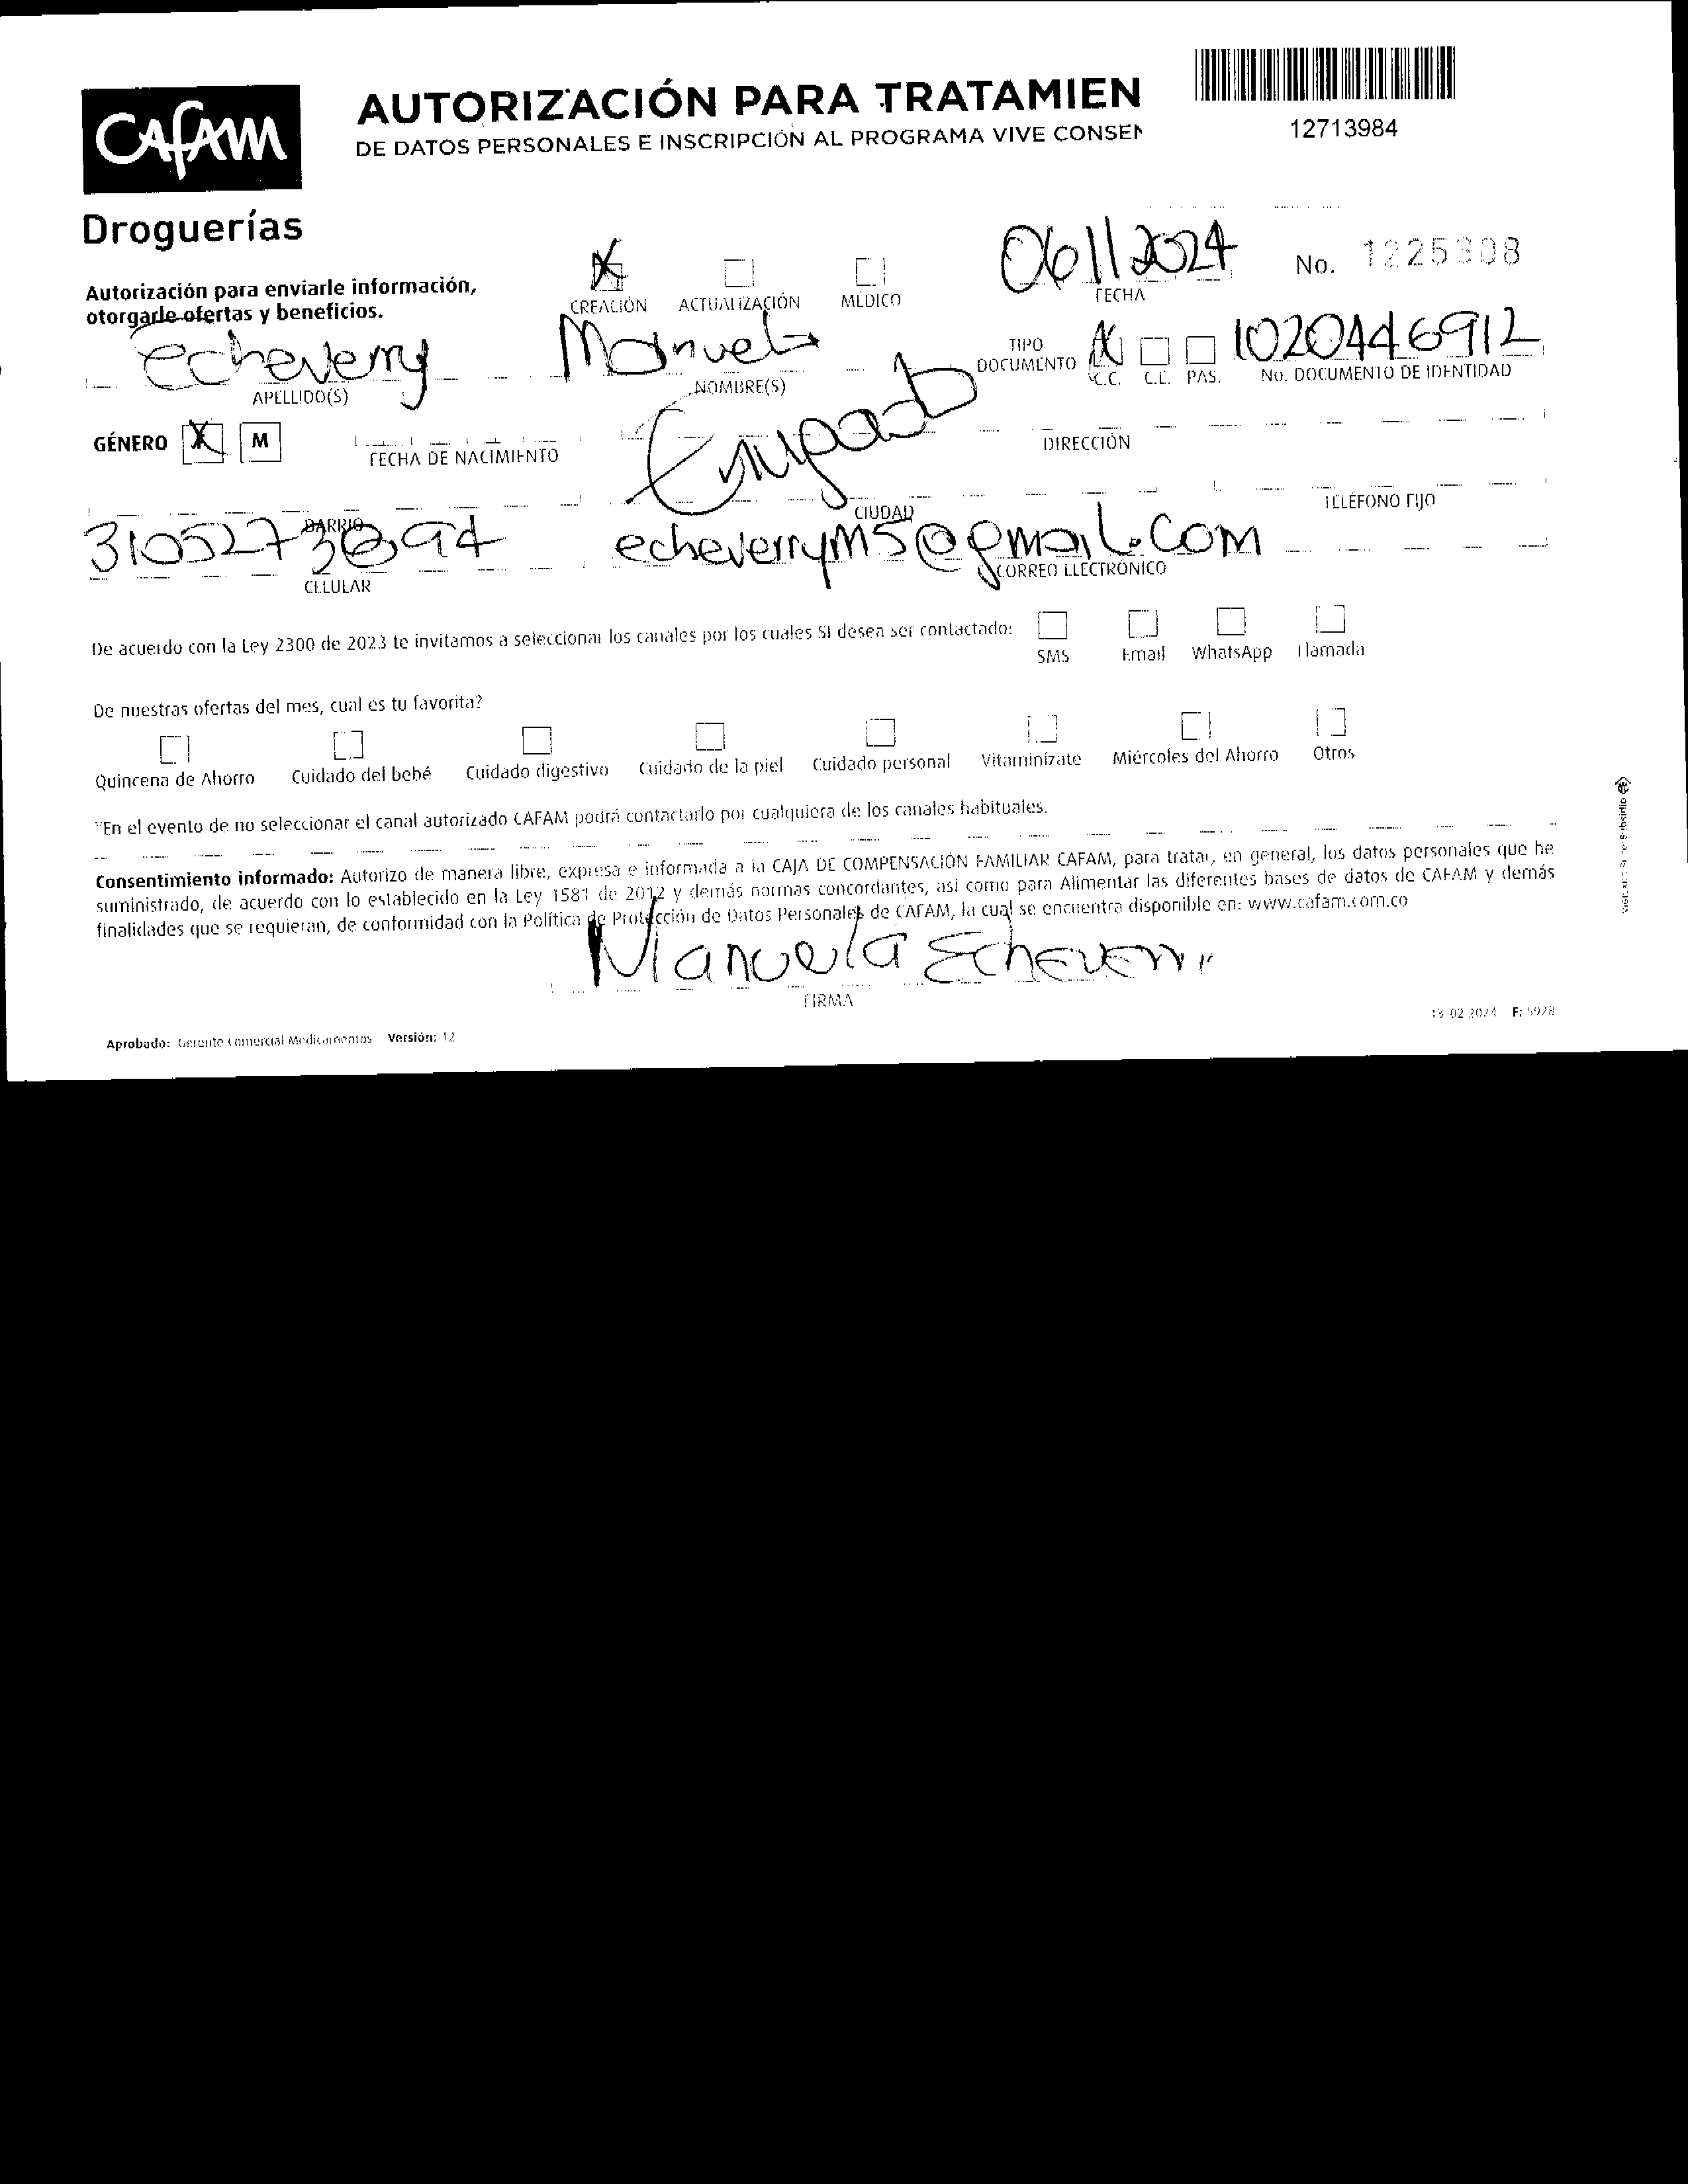 CAFAM
Droguerías
AUTORIZACIÓN PARA TRATAMIEN
DE DATOS PERSONALES E INSCRIPCIÓN AL PROGRAMA VIVE CONSEN
12713984
Autorización para enviarle información,
otorgarle ofertas y beneficios.
X CREACIÓN ACTUALIZACIÓN MÉDICO
06112024
FECHA
No. 1225308
echeverry Manuela
APELLIDO(S) NOMBRE(S)
TIPO DOCUMENTO X C.C. C.E. PAS.
1020446912
No. DOCUMENTO DE IDENTIDAD
GÉNERO X M
FECHA DE NACIMIENTO
DIRECCIÓN
BARRIO CIUDAD TELÉFONO FIJO
echeverrym5@gmail.com
CELULAR CORREO ELECTRÓNICO
De acuerdo con la Ley 2300 de 2023 te invitamos a seleccionar los canales por los cuales SI desea ser contactado:
SMS Email WhatsApp Llamada
De nuestras ofertas del mes, cual es tu favorita?
Quincena de Ahorro Cuidado del bebé Cuidado digestivo Cuidado de la piel Cuidado personal Vitaminízate Miércoles del Ahorro Otros
"En el evento de no seleccionar el canal autorizado CAFAM podrá contactarlo por cualquiera de los canales habituales.
Consentimiento informado: Autorizo de manera libre, expresa e informada a la CAJA DE COMPENSACIÓN FAMILIAR CAFAM, para tratar, en general, los datos personales que he
suministrado, de acuerdo con lo establecido en la Ley 1581 de 2012 y demás normas concordantes, así como para Alimentar las diferentes bases de datos de CAFAM y demás
finalidades que se requieran, de conformidad con la Política de Protección de Datos Personales de CAFAM, la cual se encuentra disponible en: www.cafam.com.co
Manuela Echeverri
FIRMA
Aprobado: Gerente Comercial Medicamentos Versión: 12
13 02 2024 F: 5928